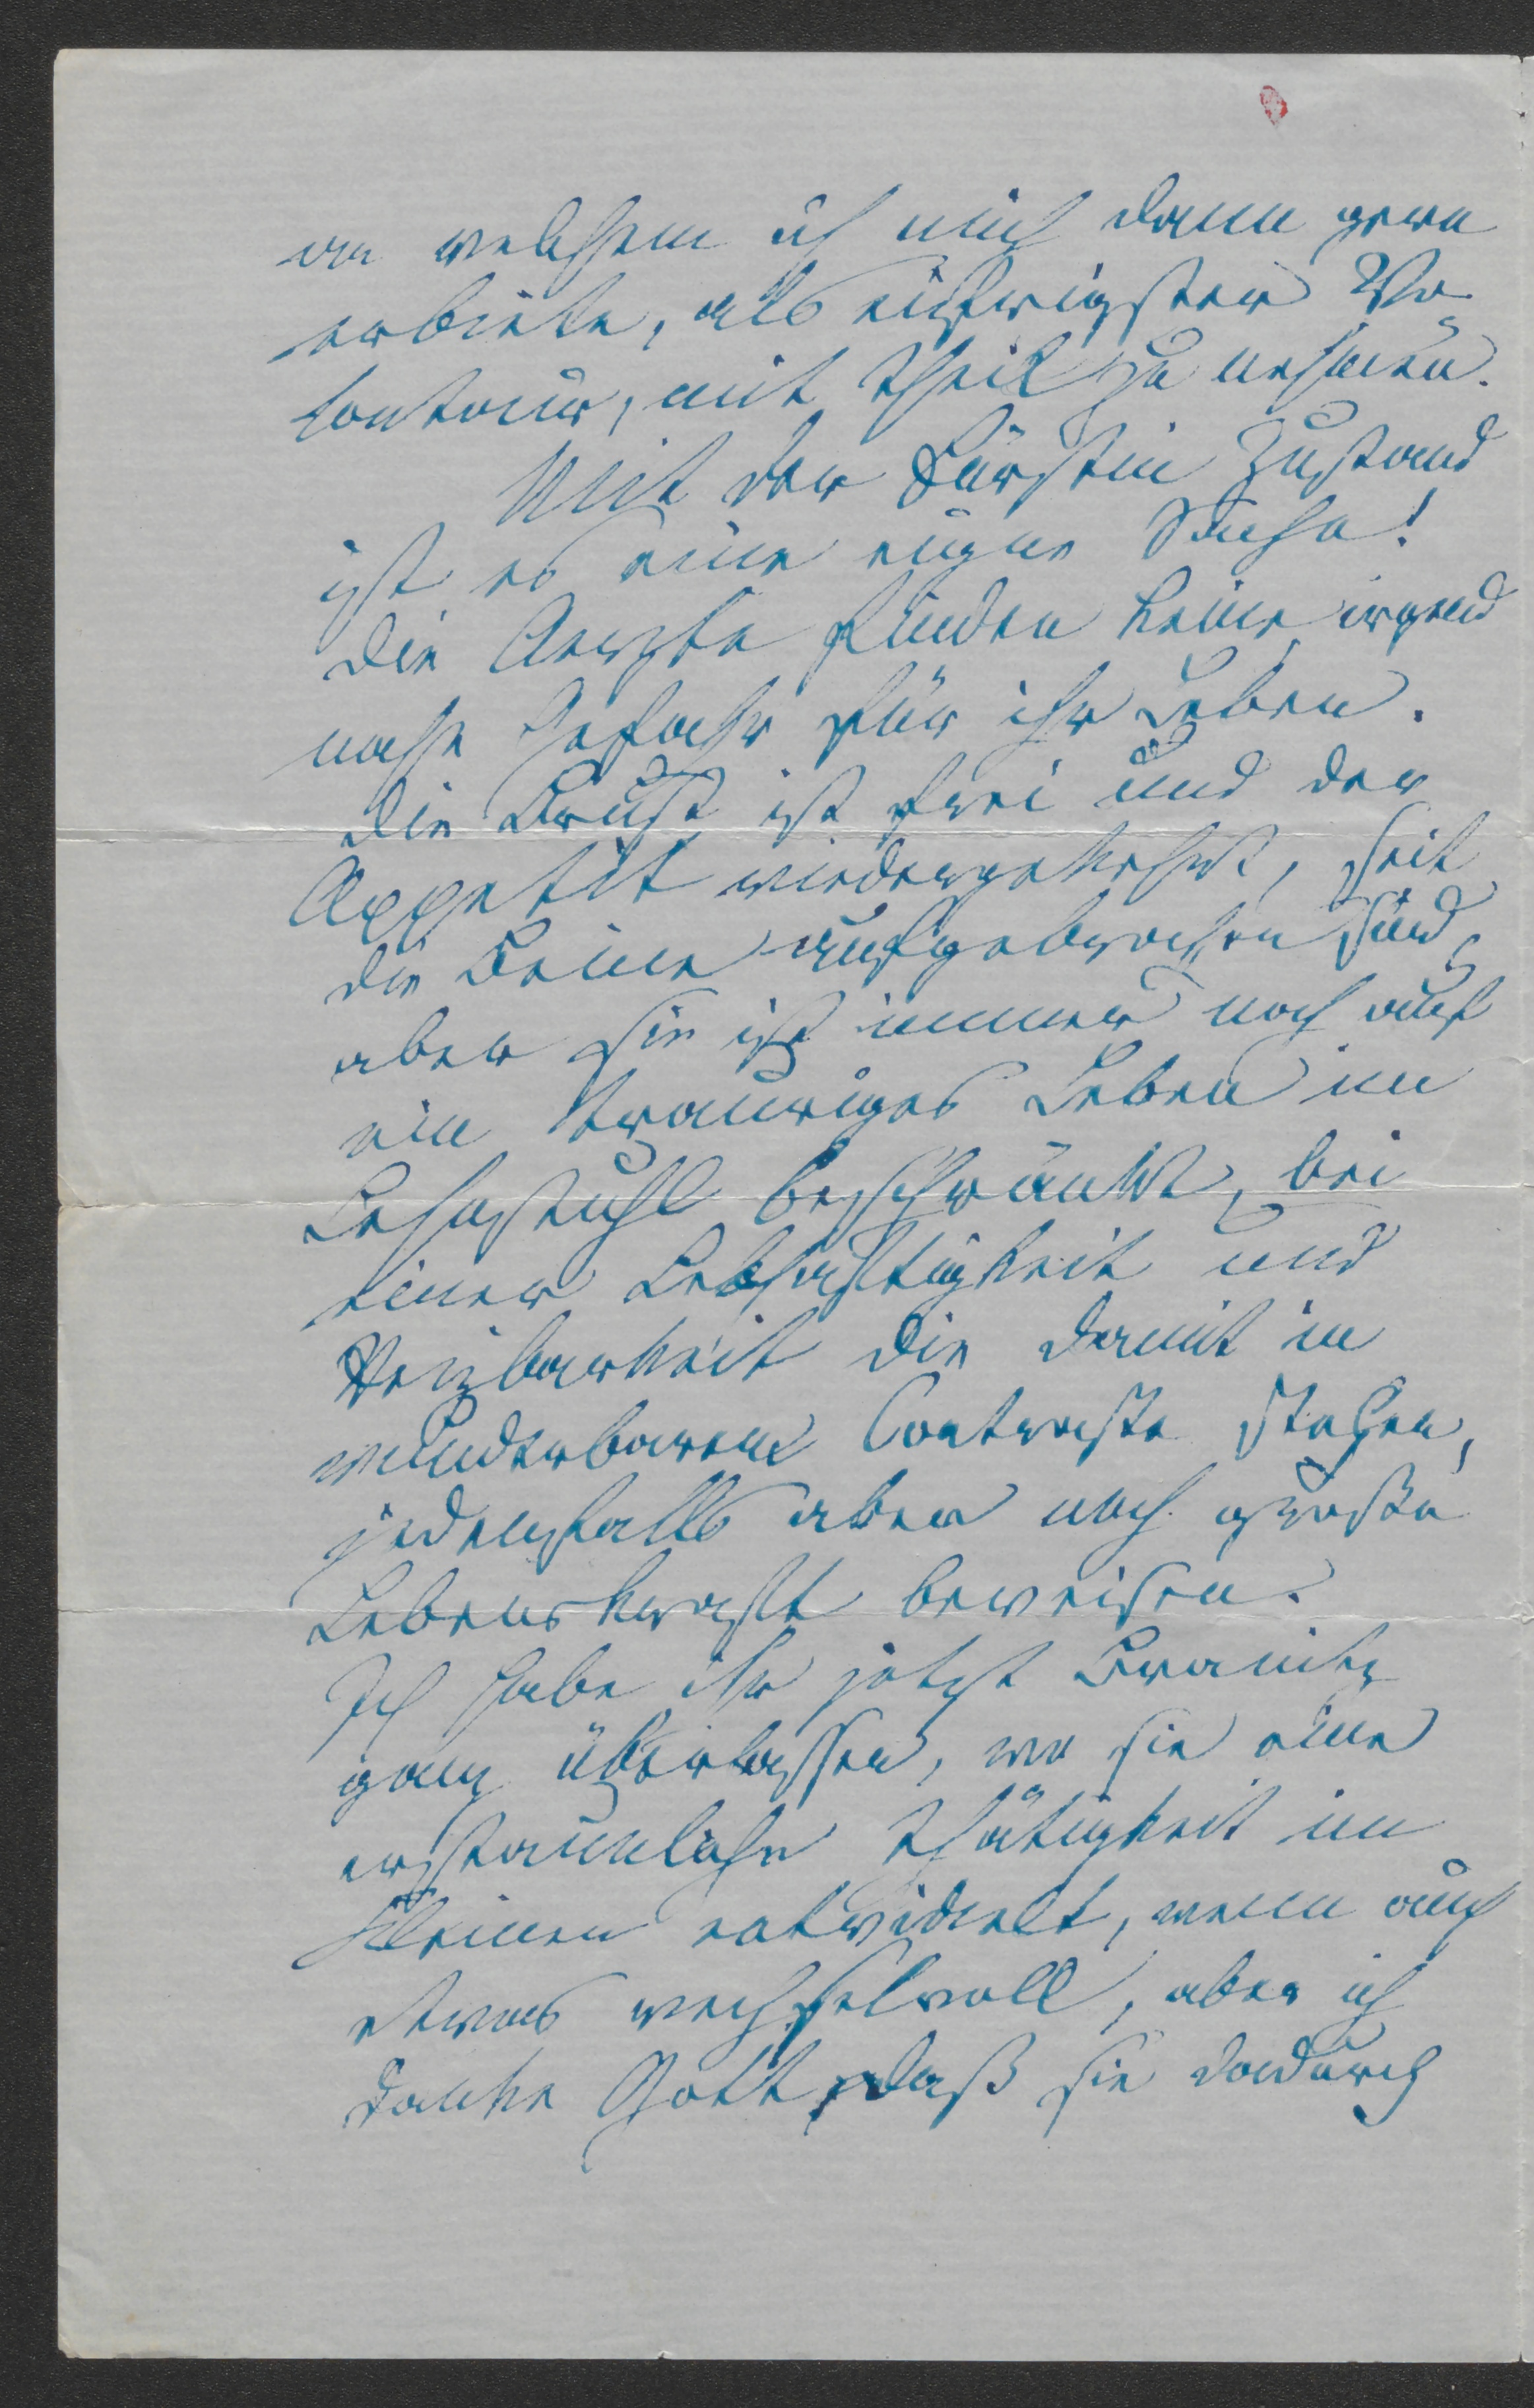 an welchem ich mich dann gern
erbiete, als eifrigster Vo-
lontair, mit Theil zu nehmen.
Mit der Fürstin Zustand
ist es eine eigne Sache!
Die Aerzte finden keine irgend
nahe Gefahr für ihr Leben.
Die Brust ist frei und der
Appetit wiedergekehrt, seit
die Beine aufgebrochen sind,
aber sie ist immer noch auf
ein trauriges Leben im
Lehnstuhl beschränkt, bei
einer Lebhaftigkeit und
Reizbarkeit die damit in
wunderbarem Contraste stehen,
jedenfalls aber noch große
Lebenskraft beweisen.
Ich habe ihr jetzt Branitz
ganz überlassen, wo sie eine
erstaunliche Thätigkeit im
Kleinen entwickelt, wenn auch
etwas wechselvoll, aber ich
danke Gott, daß sie dadurch